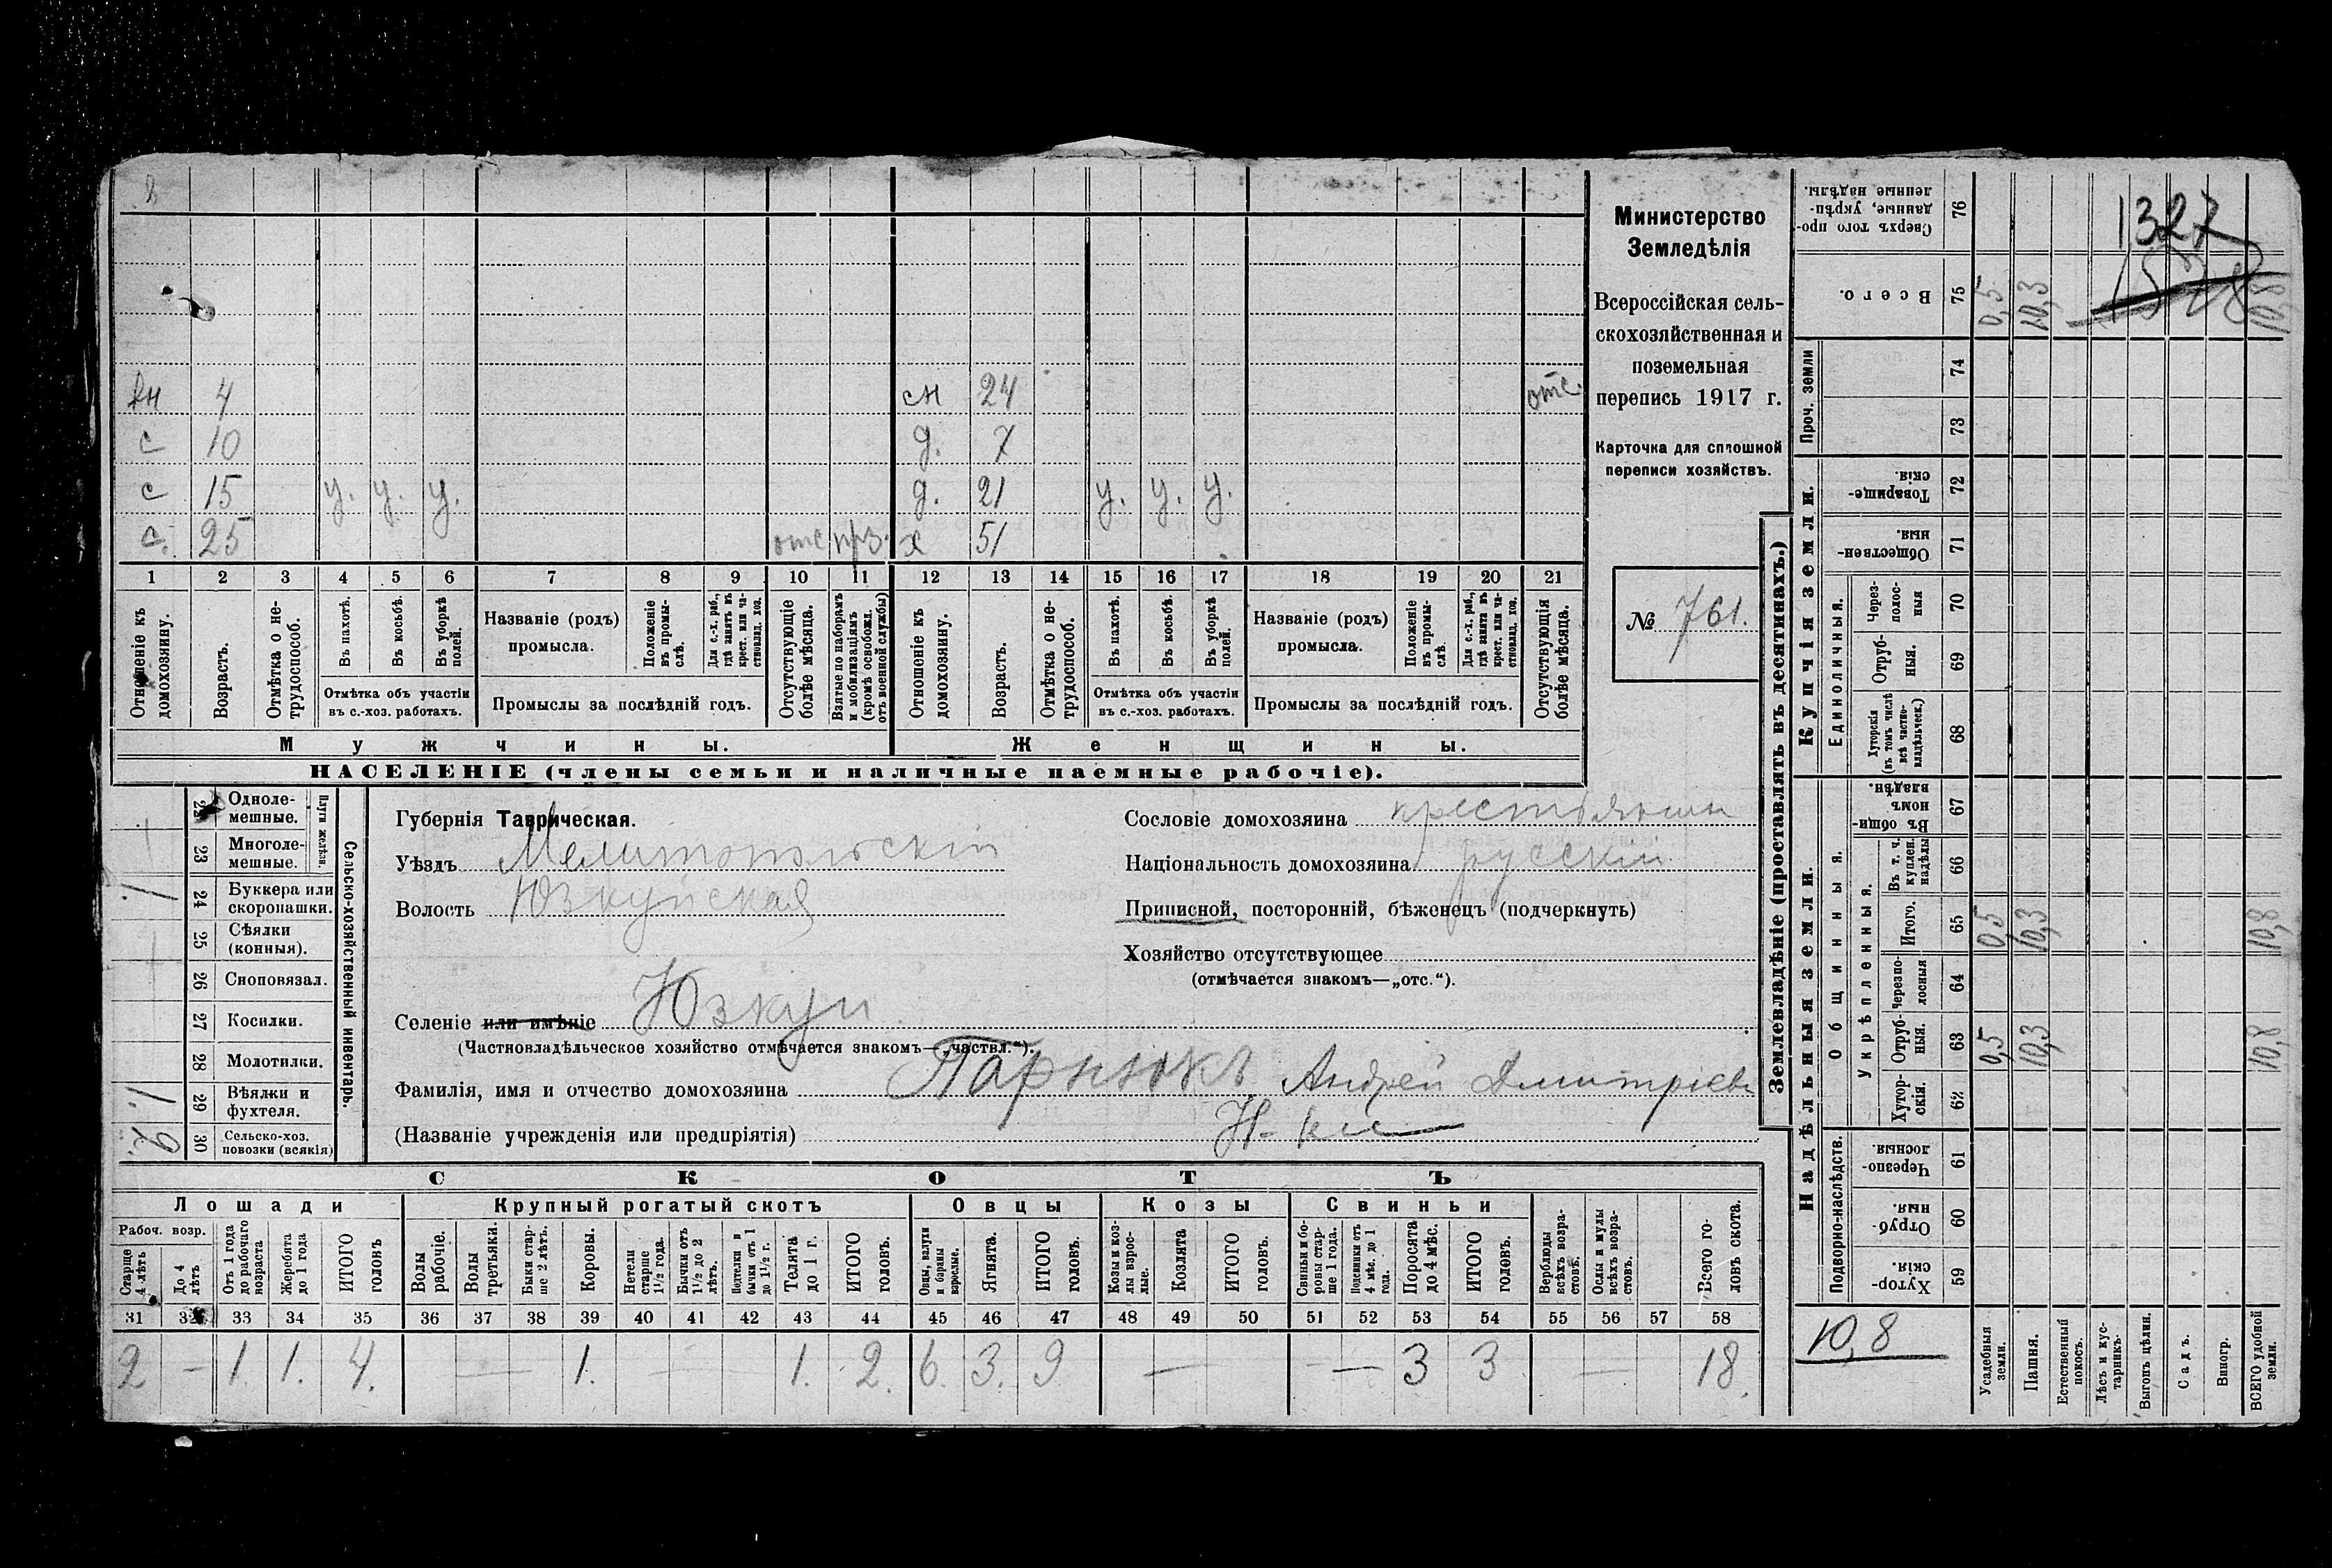 в
вн 4 сн 24 отс.
с 10 д. 7
с 15 у. у. у. д. 21 у. у. у.
с. 25 отс прз. х 51
1 2 3 4 5 6 7 8 9 10 11 12 13 14 15 16 17 18 19 20 21
Отношеніе къ домохозяину.
Возрастъ.
Отмѣтка о не-трудоспособ.
Въ пахотѣ.
Въ косьбѣ.
Въ уборкѣ полей.
Отмѣтка объ участіи
въ с.-хоз. работахъ.
Названіе (родъ)
промысла.
Положеніе въ промы-слѣ.
Для с.-х. раб., гдѣ занятъ въ крест. или ча-стновлад. хоз.
Промыслы за послѣдній годъ.
Отсутствующіе болѣе мѣсяца.
Взятые по наборамъ и мобилизаціямъ (кромѣ освобожд. отъ военной службы)
Отношеніе къ домохозяину.
Возрастъ.
Отмѣтка о не-трудоспособ.
Въ пахотѣ.
Въ косьбѣ.
Въ уборкѣ полей.
Отмѣтка объ участіи
въ с.-хоз. работахъ.
Названіе (родъ)
промысла.
Положеніе въ промы-слѣ.
Для с.-х. раб., гдѣ заняты въ крест. или ча-стновлад. хоз.
Промыслы за послѣдній годъ.
Отсутствующія болѣе мѣсяца.
Мужчины. Женщины.
НАСЕЛЕНІЕ (члены семьи и наличные наемные рабочіе).
Министерство
Земледѣлія
Всероссійская сель-
скохозяйственная и
поземельная
перепись 1917 г.
Карточка для сплошной
переписи хозяйствъ.
№ 761.
Сельско-хозяйственный инвентарь.
Плуги желѣзн.
22 Одноле-мешные.
23 Многоле-мешные.
24 Буккера или скоропашки. 1
25 Сѣялки (конныя).
26 Сноповязал.
27 Косилки.
28 Молотилки.
29 Вѣялки и фухтеля. 1.
30 Сельско-хоз. повозки (всякія) 2
Губернія Таврическая.
Уѣздъ Мелитопольскій
Волость Юзкуйская
Селеніе или имѣніе Юзкуи
(Частновладѣльческое хозяйство отмѣчается знакомъ—„частвл.“).
Фамилія, имя и отчество домохозяина Парнюкъ Андрей Дмитріев
(Названіе учрежденія или предпріятія)
Сословіе домохозяина крестьянин
Національность домохозяина русскій
Приписной, посторонній, бѣженецъ (подчеркнуть)
Хозяйство отсутствующее
(отмѣчается знакомъ—„отс.“).
СКОТЪ
Лошади Крупный рогатый скотъ Овцы Козы Свиньи
Рабоч. возр.
Старше 4 лѣтъ
До 4 лѣтъ
Отъ 1 года до рабочаго возраста
Жеребята до 1 года
ИТОГО головъ
Волы рабочіе.
Волы третьяки.
Быки стар-ше 2 лѣтъ.
Коровы.
Нетели старше 1½ года.
Бычки отъ 1½ до 2 лѣтъ.
Подтелки и бычки отъ 1 до 1½ г.
Телята до 1 г.
ИТОГО головъ.
Овцы, валухи и бараны взрослые.
Ягнята.
ИТОГО головъ.
Козы и коз-лы взрос-лые.
Козлята
ИТОГО головъ.
Свиньи и бо-ровы стар-ше 1 года.
Подсвинки отъ 4 мѣс. до 1 года.
Поросята до 4 мѣс.
ИТОГО головъ.
Верблюды всѣхъ возра-стовъ.
Ослы и мулы всѣхъ возра-стовъ.
Всего го-ловъ скота.
31 32 33 34 35 36 37 38 39 40 41 42 43 44 45 46 47 48 49 50 51 52 53 54 55 56 57 58
2 — 1. 1. 4. — 1. — 1. 2. 6. 3. 9 — — 3 3 — 18.
Землевладѣніе (проставлять въ десятинахъ.)
Купчія земли.
Надѣльныя земли.
Проч. земли
Единоличныя.
Общинныя.
Укрѣпленныя.
Подворно-наслѣдств.
Сверхъ того про-данные, укрѣп-ленные надѣлы. 76
Всего. 75 0,5 10,3 10,8
74
73
Товарище-скія. 72
Обществен-ныя. 71
Через-полос-ныя 70
Отруб-ныя. 69
Хуторскія (въ томъ числѣ всѣ частно-владѣльческ.) 68
Въ общин-номъ владѣн. 67
Въ т. ч. куплен. надѣлы 66
Итого. 65 0,5 10,3 10,8
Черезпо-лосныя 64
Отруб-ныя. 63 0,5 10,3 10,8
Хутор-скія. 62
Черезпо-лосныя 61
Отруб-ныя. 60
Хутор-скія. 59
1327
10,8
Усадебныя земли.
Пашня.
Естественный покосъ.
Лѣсъ и кус-тарникъ.
Выгонъ цѣлин.
Садъ.
Виногр.
ВСЕГО удобной земли.